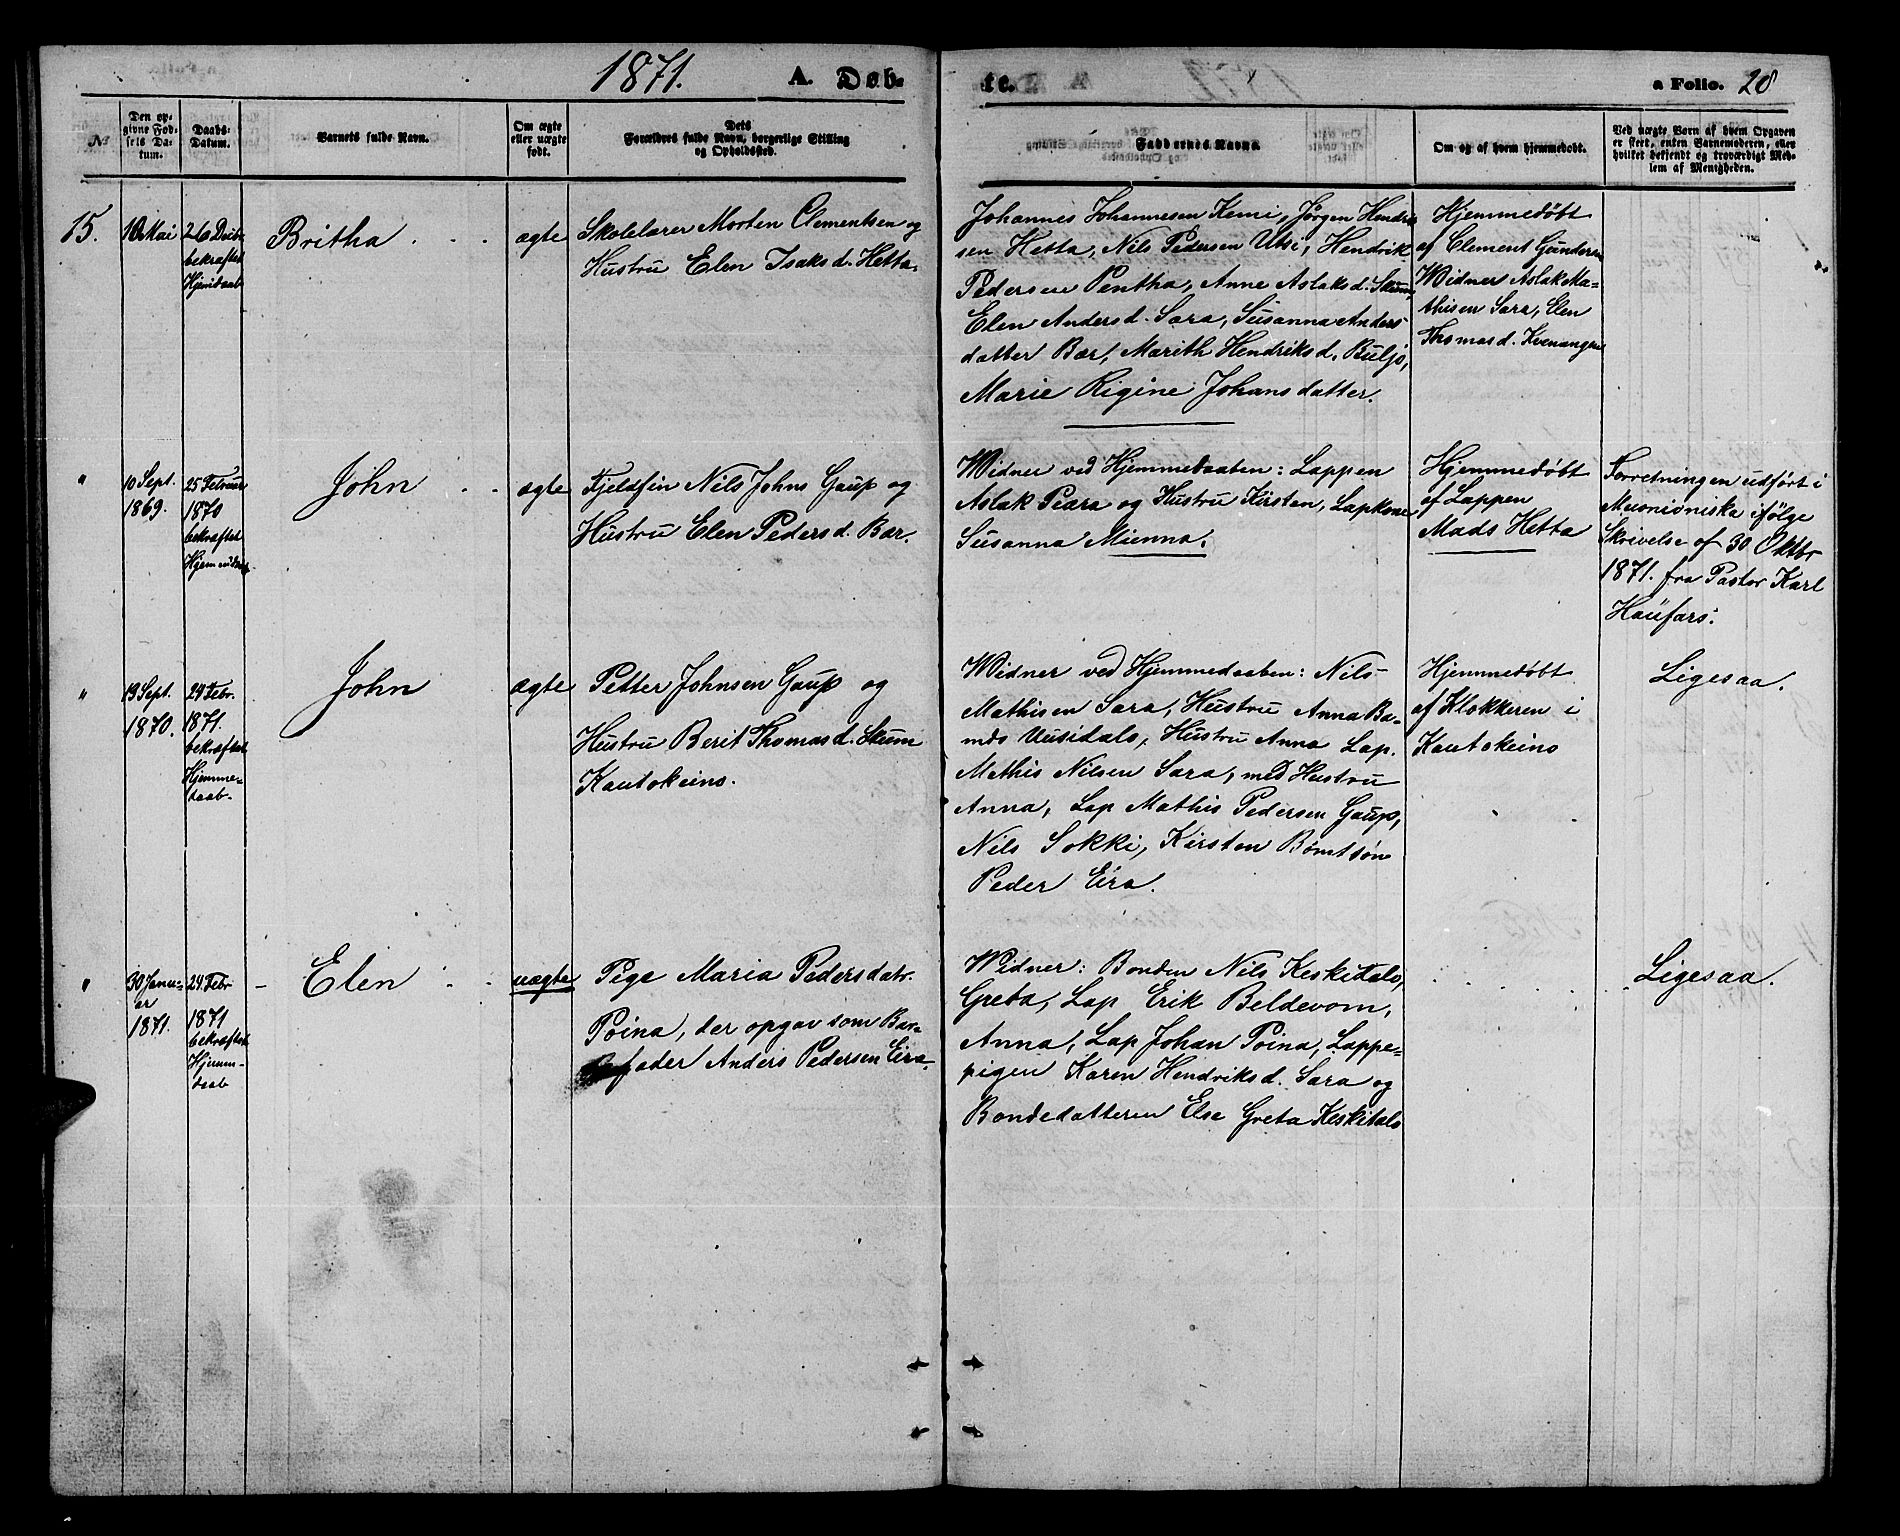 1871. A. Døb-
te. a Folio. 28
№
Den op-
givne Fød-
sels Da-
tum.
Daabs-
Datum.
Barnets fulde Navn.
Om ægte
eller uægte
født.
Dets
Forældres fulde Navn, borgerlige Stilling
og Opholdssted.
Faddernes Navne.
Om og af hvem hjemmedøbt.
Ved uægte Børn af hvem Opgaven
er skeet, enten Barnemoderen, eller
hvilket bekjendt og troværdigt Med-
lem af Menigheden.
15.
10 Mai
26 Decbr.
bekræftet
Hjemdaab
Britha
ægte
Skolelærer Morten Clementsen og
Hustru Elen Isaksd. Hetta.
Johannes Johannesen Kemi, Jørgen Hendrik
sen Hetta, Nils Pedersen Utsi, Hendrik
Pedersen Pentha, Anne Aslaksd. Skum,
Elen Andersd. Sara, Susanna Anders
datter Bær, Marith Hendriksd. Buljo,
Marie Rigine Johansdatter.
Hjemmedøbt
af Clement Gundersen
Widner Aslak Ma-
thisen Sara, Elen
Thomasd. Kvenangen
"
10 Sept.
1869.
25 Februar
1870
bekræftet
John
ægte
Fjeldfin Nils Johns Gaup og
Hustru Elen Pedersd. Bær.
Widner ved Hjemmedaaben: Lappen
Aslak Peara og Hustru Kirsten, Lapkone
Susanna Mienna.
Hjemmedøbt
af Lappen
Mads Hetta
Forretningen udført i
Muonioniska ifølge
Skrivelse af 30 Oktbr
1871. fra Pastor Karl
"
19 Sept.
1870.
24 Febr.
1871.
bekræftet
Hjemme-
daab.
John
ægte
Petter Johnsen Gaup og
Hustru Berit Thomasd. Skum
Kautokeino.
Widner ved Hjemmedaaben: Nils
Mathisen Sara, Hustru Anna
Hustru Anna Lap.
Mathis Nilsen Sara, med Hustru
Anna, Lap Mathis Pedersen Gaup,
Nils Sokki, Kirsten
Peder Eira.
Hjemmedøbt
af Klokkeren i
Kautokeino
Ligesaa.
"
30 Janu-
ar
1871.
24 Febr
1871
bekræftet
Hjemm-
daab
Elen
uægte
Pige Maria Pedersdatr.
Poina, der opgav som Bar-
nefader Anders Pedersen Eira.
Widner: Bonden Nils Keskitalo,
Greta, Lap Erik Beldevom,
Anna, Lap Johan Poina, Lappe-
pigen Karen Hendriksd. Sara og
Bondedatteren Else Greta Keskitalo
Ligesaa.